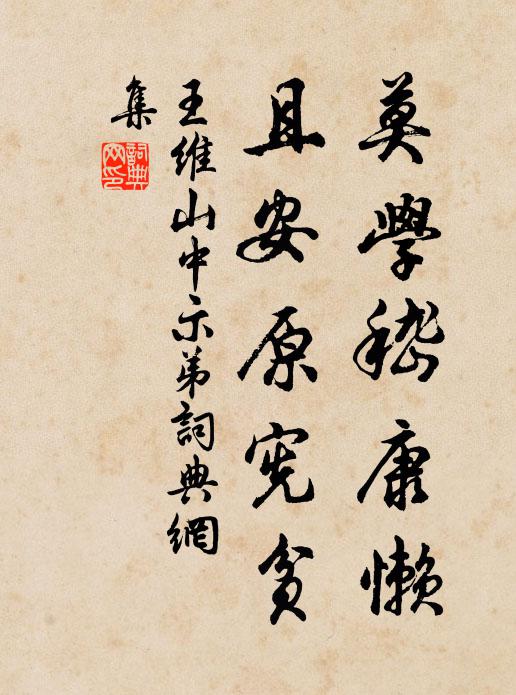 莫學嵇康懶
且安原憲貧
王維山中示弟詞典網
集
詞典
網印